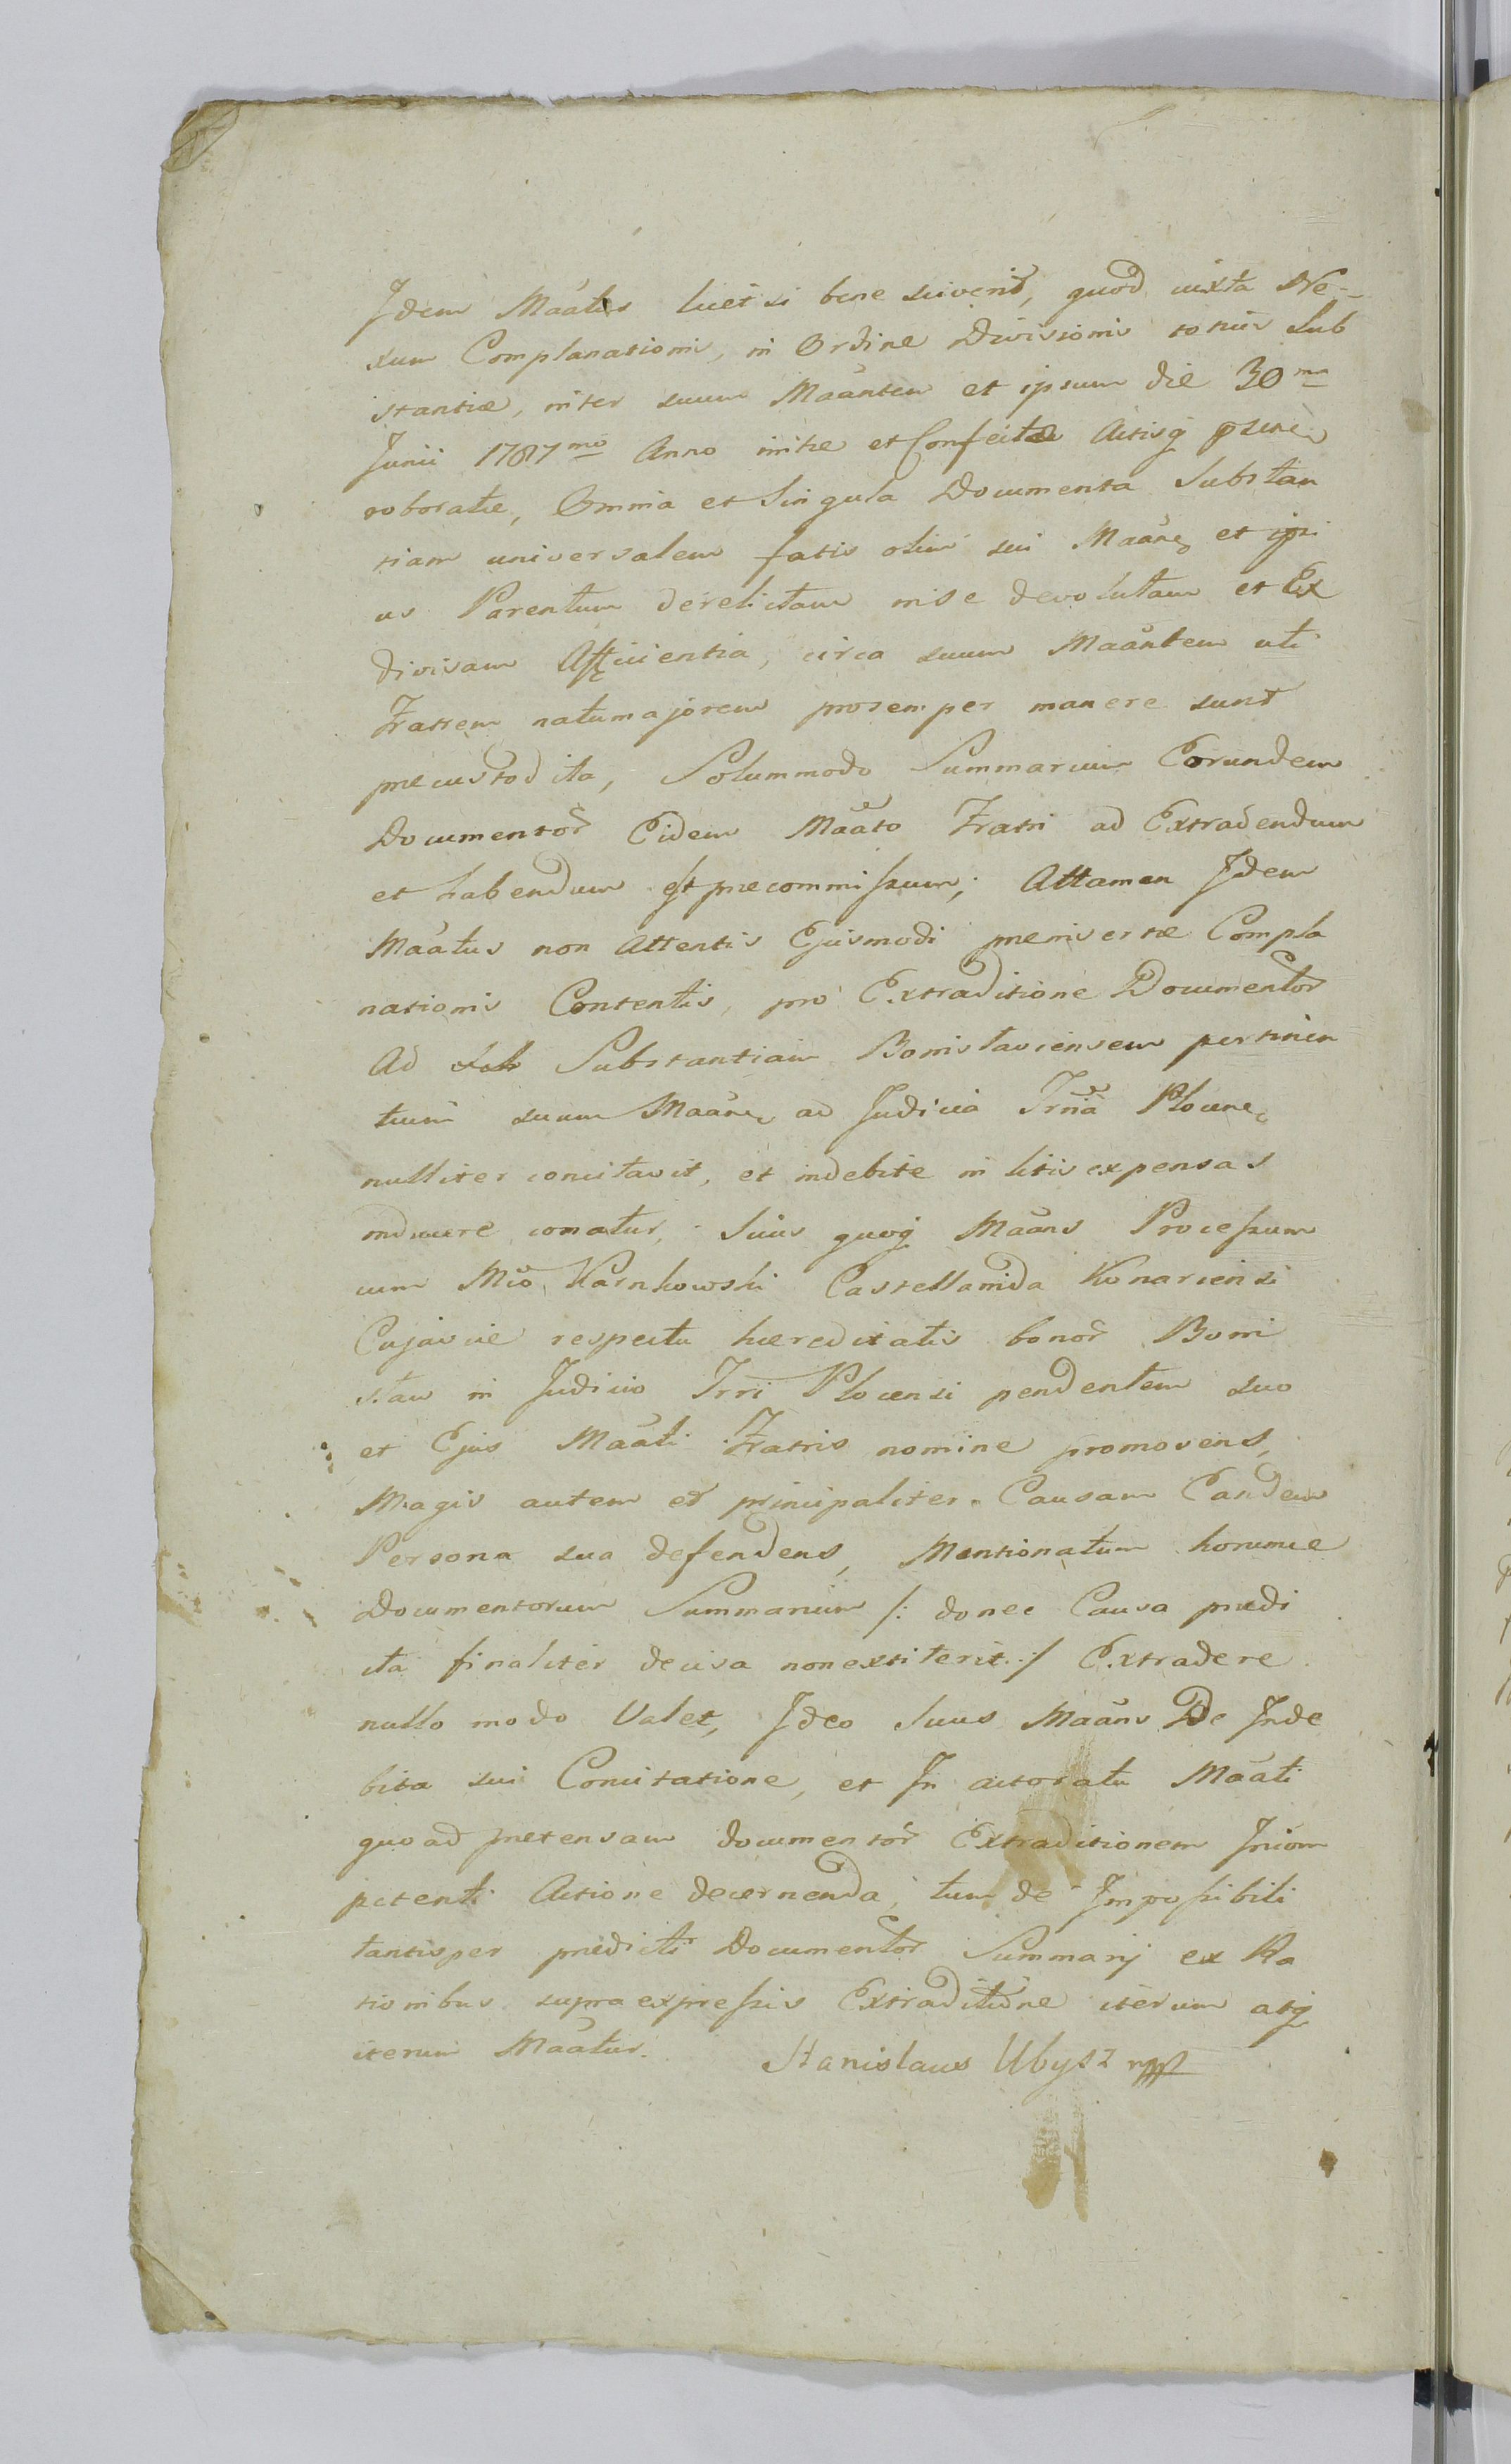 Jdem Maãtus licet si bene sciverit, quod iuxta Ne-
xum Complanationis, in Ordine Divisionis totius Sub
stantiæ, inter suum Maãntem et ipsum die 30ma
Junii 1787mo Anno initæ et Confectæ Actisq
roboratæ, Omnia et Singula Documenta Substan
tiam universalem fatis olim sui Maãn et ipsi
us Parentum derelictam inse devolutam et Ex
divisam Afficientia, circa suum Maãntem uti
Fratrem natumajorem prosemper manere sunt
præcustodita, Solummodo Summarium Eorundem
Documentor̃ Eidem Maãto Fratri ad Extradendum
et habendum est præcommissum; Attamen Jdem
Maãtus non Attentis Ejusmodi præinsertæ Compla
nationis Contentis, pro Extraditione Documentor̃
Ad Substantiam Bonislaviensem pertinen
tium suum Maãn ad Judicia Trrña Plocen
nulliter concitavit, et indebite in litis expensas
inducere conatur, Suus quoq Maãns Processum
cum Mco Karnkowski Castellanida Konariensi
Cujaviæ respectu hæreditatis bonor̃ Boni
slaw in Judicio Trri Plocensi pendentem suo
et Ejus Maãti Fratris nomine promovens,
Magis autem et principaliter Causam Eandem
Persona sua defendens, Mentionatum horumce
Documentorum Summarium /: donec Causa prædi
cta finaliter decisa nonextiterit :/ Extradere
nullo modo Valet, Jdeo Suus Maãns De Jnde
bita sui Concitatione, et Jn actoratu Maãti
quoad prætensam documentor̃ Extraditionem Jncom
petenti Actione decernenda, tum de Jmpossibili
tantisper prædicti Documentor̃ Summarij ex Ra
tionibus supra expressis Extraditione iterum atq
iterum Maãtur.
Stanislaus Ubysz mpp